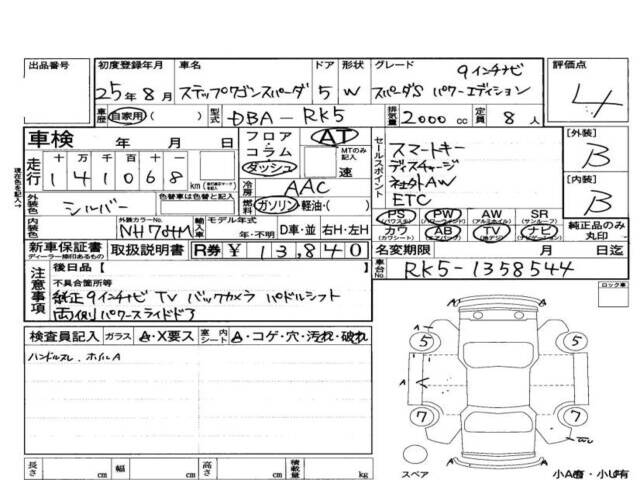 出品番号 初度登録年月 車名 ドア 形状 グレード 評価点
25年8月 ステップワゴンスパーダ 5 W 9インチナビ
スパーダS パワーエディション 4
車歴 自家用( ) 型式 DBA-RK5 排気量 2000cc 定員 8人
車検 年 月 日 フロア AT セールスポイント スマートキー [外装]
コラム MTのみ記入 ディスチャージ B
走行 十 万 千 百 十 一 ダッシュ 速 社外AW
141068 km 冷房 AAC ETC [内装]
外装色 シルバー 色替車は色替と記入 燃料 ガソリン・軽油・( ) B
PS PW AW SR
(パワステ) (パワーウィンド) (アルミホイル) (サンルーフ)
内装色 外装カラーNo. NH704M 輸入車 モデル年式 年・不明 D車・並 右H・左H カワ AB TV ナビ 純正品のみ丸印
(カワシート) (エアバッグ) (地デジ) (ナビゲーション)
新車保証書 取扱説明書 R券 ¥ 13,840 名変期限 月 日迄
ディーラー捺印あるもの
車台No. RK5-1358544
注意事項 後日品【 】 ロック車
不具合箇所等
純正9インチナビ TV バックカメラ パドルシフト
両側パワースライドドア
検査員記入 ガラス A・X要ス 室内シート A・コゲ・穴・汚れ・破れ
ハンドルスレ、ホイルA
5 5
A A
7 7
A
スペア 小A有・小U有
長さ cm 幅 cm 高さ cm 積載量 kg
現在色を記入→